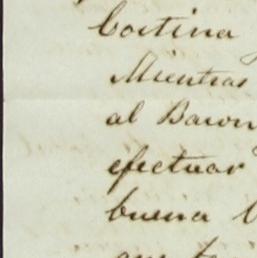 Cortina
Mientras
al Baron
efectuar
buena